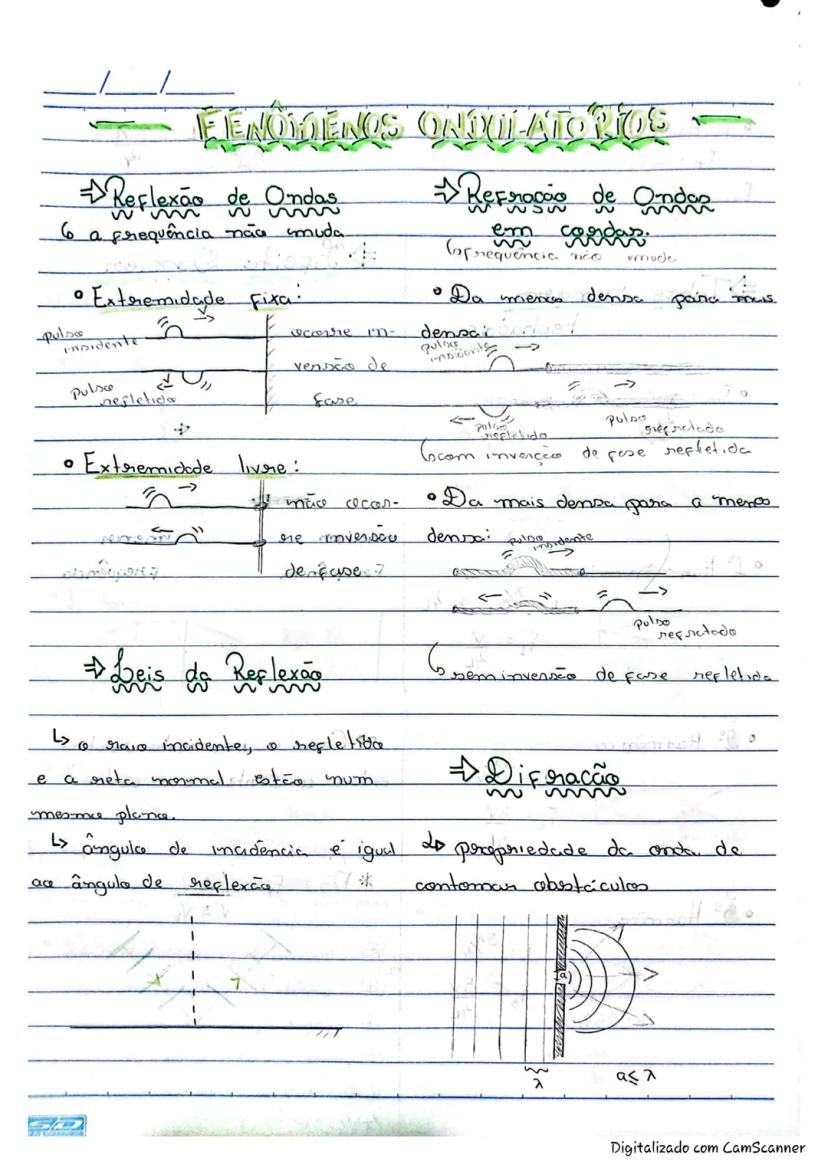 FENÔMENOS ONDULATÓRIOS
⇒ Reflexão de Ondas
↳ a frequência não muda
• Extremidade fixa:
pulso
insidente
ocorre in-
versão de
fase
pulso
refletido
• Extremidade livre:
não ocor-
re inversão
de fase
⇒ Leis da Reflexão
↳ o raio incidente, o refletido
e a reta normal estão num
mesmo plano.
↳ ângulo de incidência é igual
ao ângulo de reflexão
⇒ Refração de Ondas
em cordas.
↳ frequência não muda
• Da menos densa para mais
densa:
pulso
insidente
pulso
refletido
pulso
refratado
↳ com inverção de fase refletida
• Da mais densa para a menos
densa:
pulso
insidente
pulso
refratado
↳ sem inversão de fase refletida
⇒ Difração
↳ propriedade da onda de
contornar obstáculos
a
λ
a≤λ
SD
Digitalizado com CamScanner